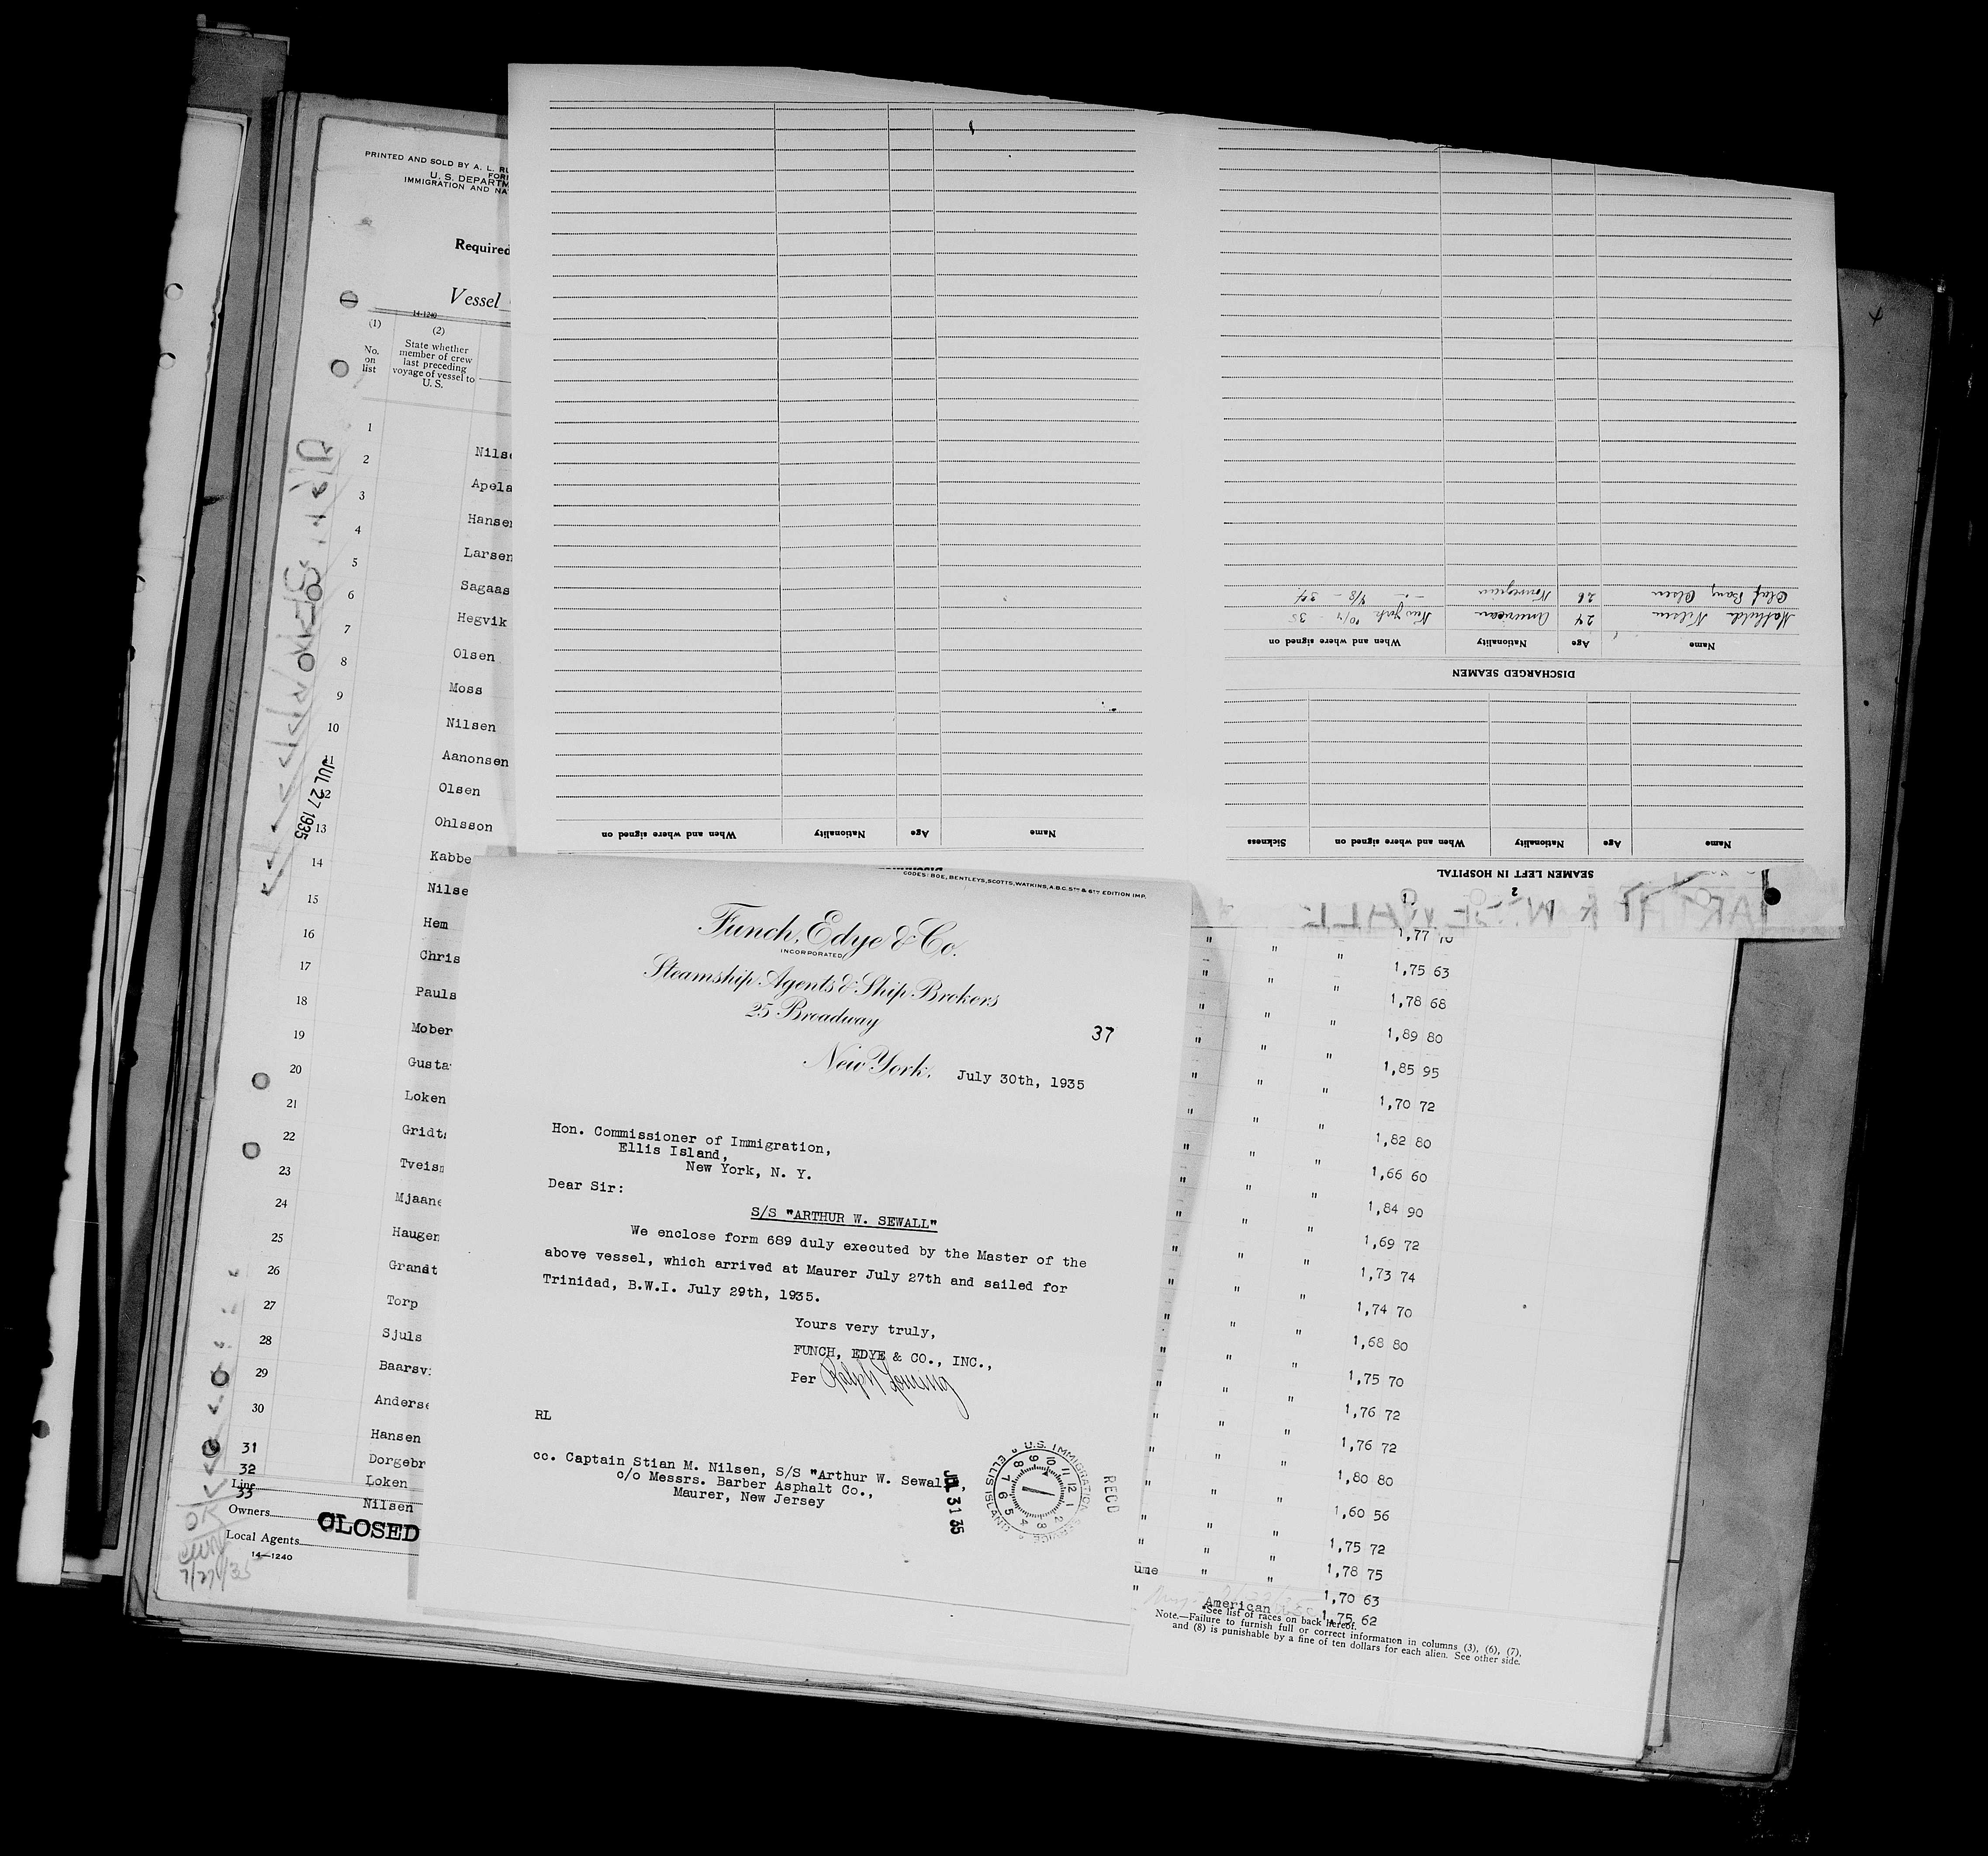 PRINTED AND SOLD BY A. L. RU
FORM
U. S. DEPARTM
IMMIGRATION AND NA
Required
Vessel
14-1240
(1)
(2)
No.
on
list
State whether
member of crew
last preceding
voyage of vessel to
U. S.
1
2
3
4
5
6
7
8
9
10
11
12
13
14
15
16
17
18
19
20
21
22
23
24
25
26
27
28
29
30
31
32
33
Nilse
Apela
Hansen
Larsen
Sagaas
Hegvik
Olsen
Moss
Nilsen
Aanonsen
Olsen
Ohlsson
Kabbe
Nilse
Hem
Chris
Pauls
Mober
Gusta
Loken
Gridt
Tveism
Mjaane
Haugen
Grandt
Torp
Sjuls
Baarsv
Anderse
Hansen
Dorgebr
Loken
Nilsen
JUL 27 1935
Line
Owners
Local Agents
CLOSED
14—1240
OK
7/27/35
SEAMEN LEFT IN HOSPITAL
2
Name
Age
Nationality
When and where signed on
Sickness
DISCHARGED SEAMEN
Name
Age
Nationality
When and where signed on
Mathilde Nilsen 24 American New York 10/4 - 35
Olaf Bang Olsen 26 Norwegian -"- 4/8 - 34
Name
Age
Nationality
When and where signed on
ARTHUR W. SEWALL
CODES: BOE, BENTLEYS, SCOTTS, WATKINS, A.B.C. 5TH & 6TH EDITION IMP.
Funch, Edye & Co.
INCORPORATED
Steamship Agents & Ship Brokers
25 Broadway
37
New York, July 30th, 1935
Hon. Commissioner of Immigration,
Ellis Island,
New York, N. Y.
Dear Sir:
S/S "ARTHUR W. SEWALL"
We enclose form 689 duly executed by the Master of the
above vessel, which arrived at Maurer July 27th and sailed for
Trinidad, B.W.I. July 29th, 1935.
Yours very truly,
FUNCH, EDYE & CO., INC.,
Per Ralph Loning
RL
cc. Captain Stian M. Nilsen, S/S "Arthur W. Sewall",
c/o Messrs. Barber Asphalt Co.,
Maurer, New Jersey
JUL 31 35
U.S. IMMIGRATION SERVICE
ELLIS ISLAND
RECD
1,77 70
1,75 63
1,78 68
1,89 80
1,85 95
1,70 72
1,82 80
1,66 60
1,84 90
1,69 72
1,73 74
1,74 70
1,68 80
1,75 70
1,76 72
1,76 72
1,80 80
1,60 56
1,75 72
1,78 75
1,70 63
1,75 62
ume
American
*See list of races on back hereof.
Note.—Failure to furnish full or correct information in columns (3), (6), (7),
and (8) is punishable by a fine of ten dollars for each alien. See other side.